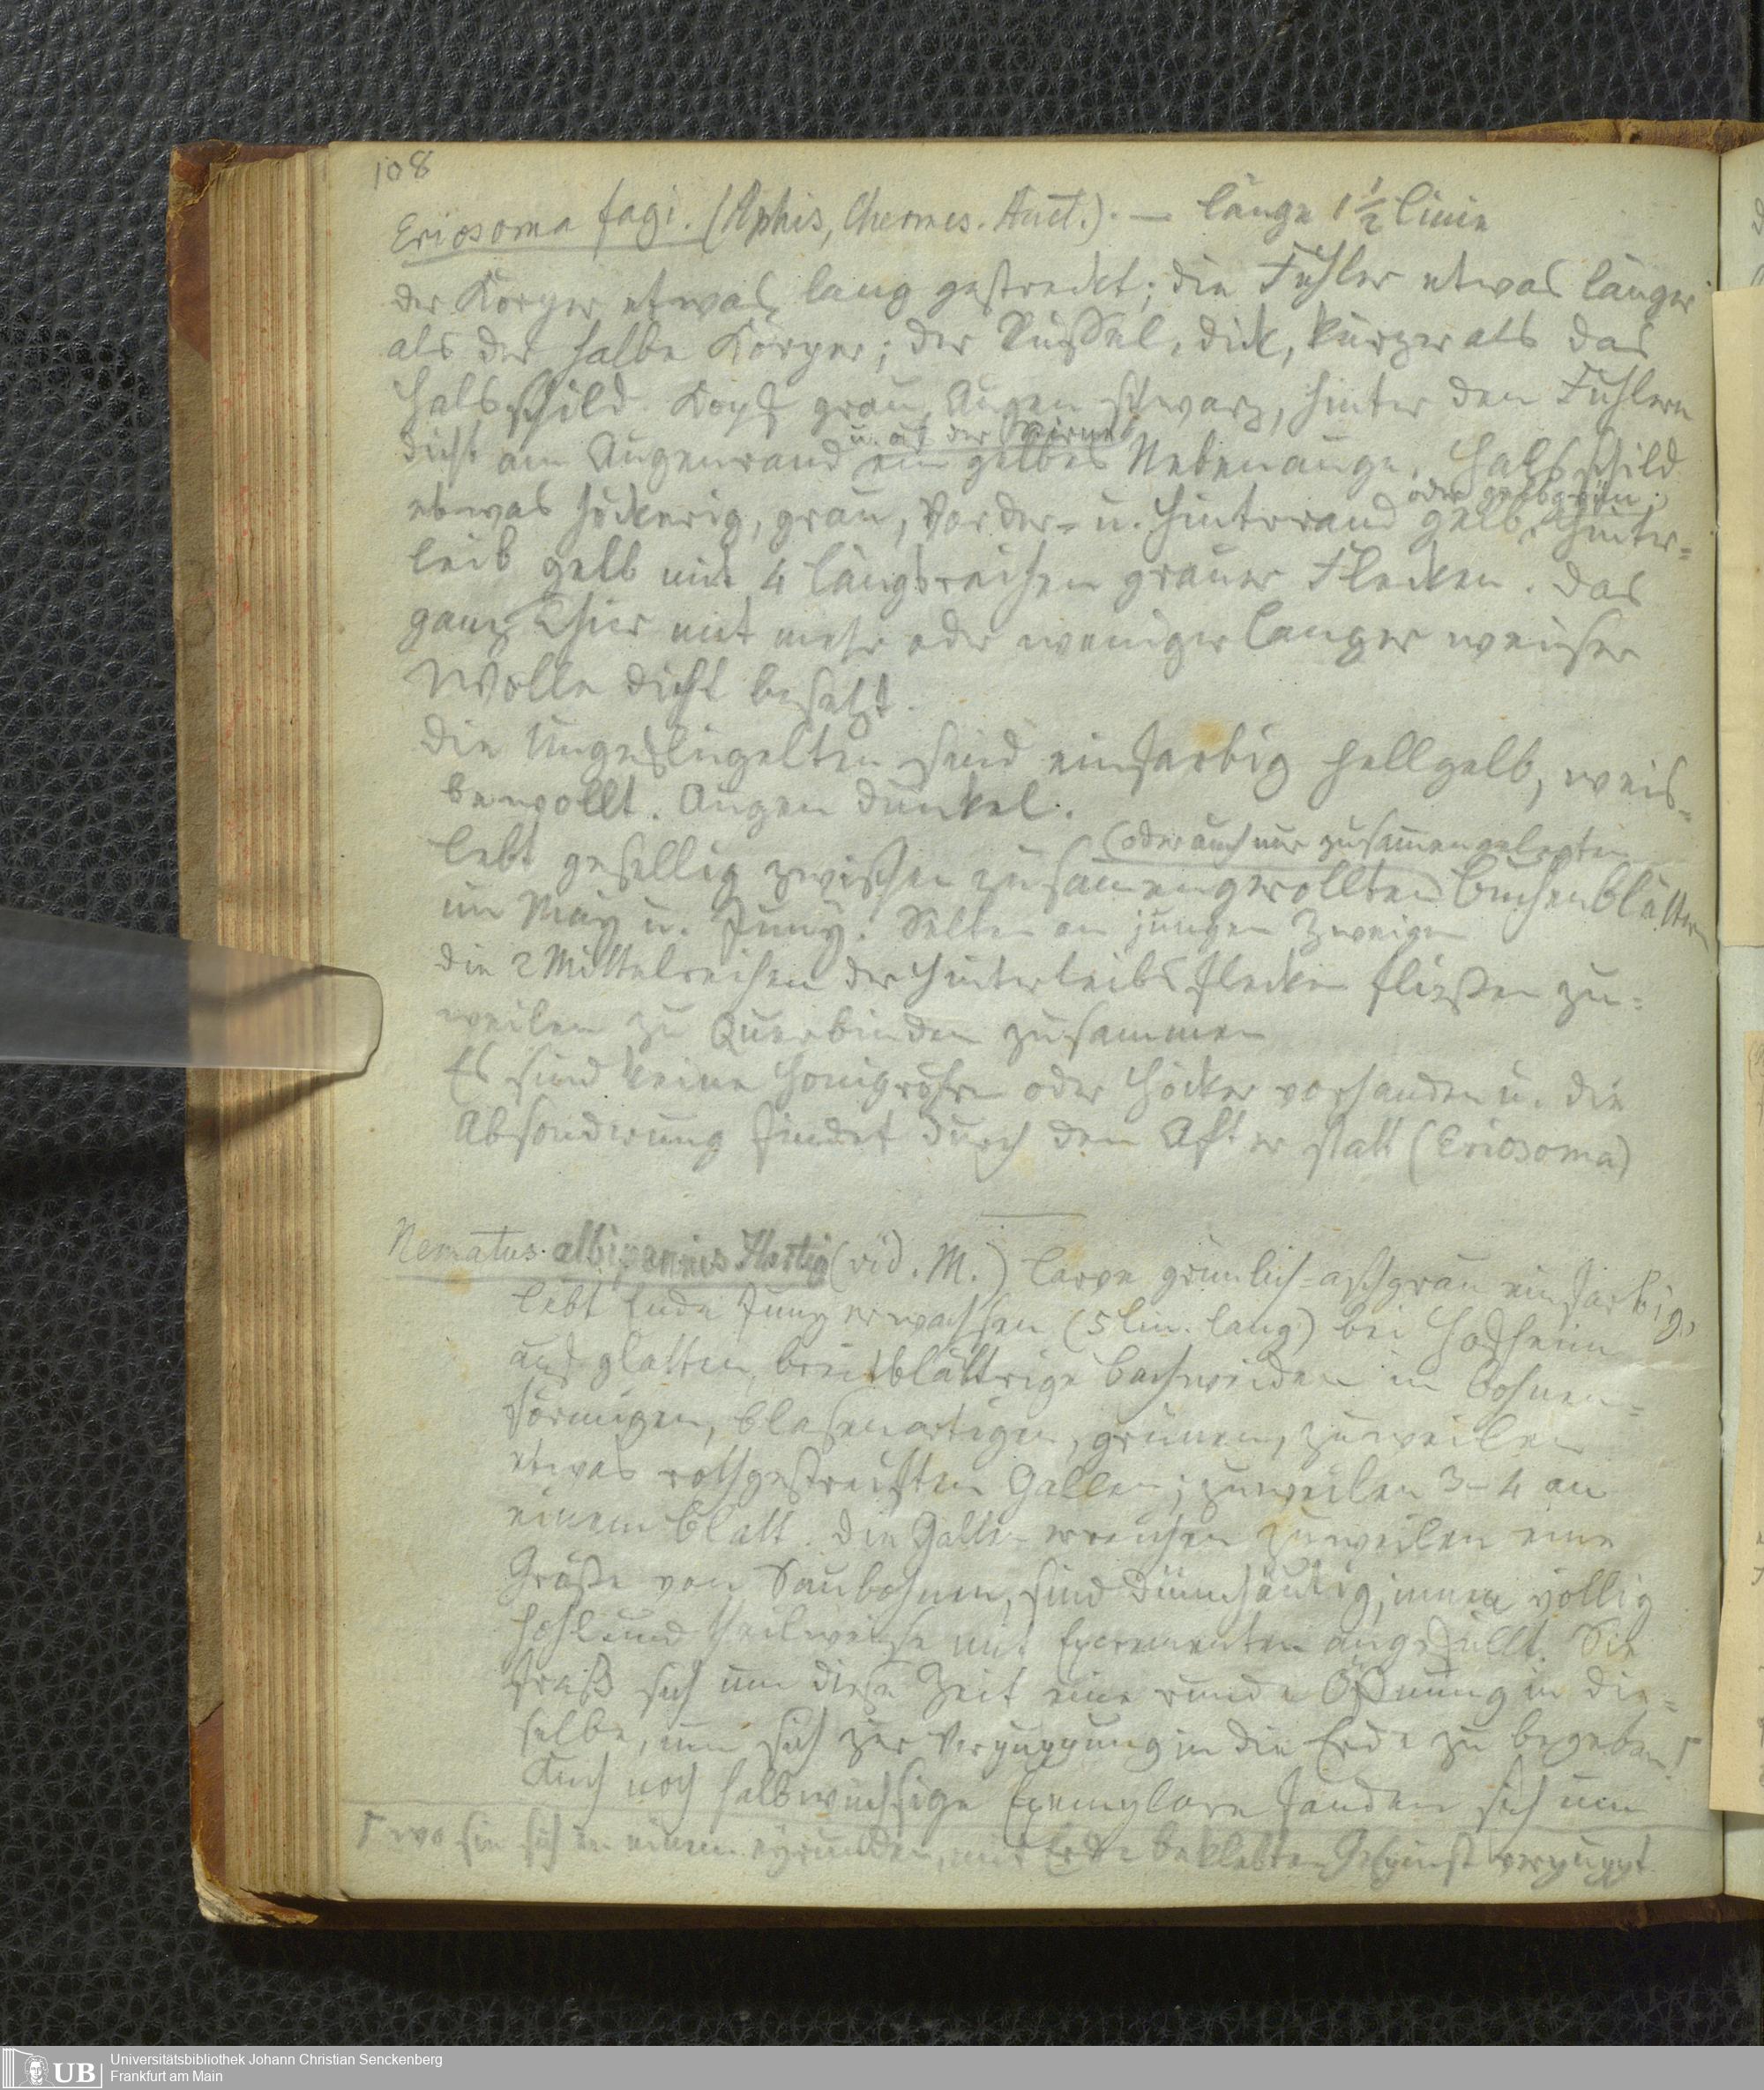 108
Eriosoma fagi. (Aphis, Chermes. Auct.). — Länge 1 1/2 Linie
der Körper etwas lang gestreckt; die Fühler etwas länger
als der halbe Körper; der Rüssel, dick, kürzer als das
Halsschild. Kopf grau, Augen schwarz, hinter den Fühlern
u. auf der Stirne
dicht am Augenrand ein gelbes Nebenauge. Halsschild
oder gelbgrün.
etwas höckerig, grau, Vorder- u. Hinterrand gelb, Hinter-
leib gelb mit 4 Längsreihen grauer Flecken. Das
ganz Thier mit mehr oder weniger langer weiser
Wolle dicht besetzt.
Die Ungeflügelten sind einfarbig hellgelb, weis-
bewollt. Augen dunkel.
(oder auch nur zusamengelegten
Lebt gesellig zwischen zusamengerollten Buchenblättern
im May u. Juny. Selten an jungen Zweigen
die 2 Mittelreihen der Hinterleibsflecken fließen zu-
weilen zu Querbinden zusammen
Es sind keine Honigröhre oder Höcker vorhanden u. die
Absonderung findet durch den After statt (Eriosoma)
Nematus albipennis Hartig (vid. M.) Larve grünlich-aschgrau einfarbig,
lebt Ende Juny erwachsen (5 Lin. lang) bei Hofheim
auf glatten, breitblättrige Bachweiden in bohnen-
förmigen, blasenartigen, grünen, zuweilen
etwas rothgestreiften Gallen; zuweilen 3-4 an
einem Blatt. Die Gallen erreichen zuweilen eine
Größe von Saubohnen, sind dünnhäutig, innen völlig
hohl und theilweise mit Excrementen angefüllt. Sie
fraß sich um diese Zeit eine runde Öffnung in die-
selbe, um sich zur Verpuppung in die Erde zu begeben.
Auch noch halbwüchsige Exemplare fanden sich um
wo sie sich in einem eyrunden, mit Erde beklebten Gespinst verpuppt
Universitätsbibliothek Johann Christian Senckenberg
Frankfurt am Main
UB